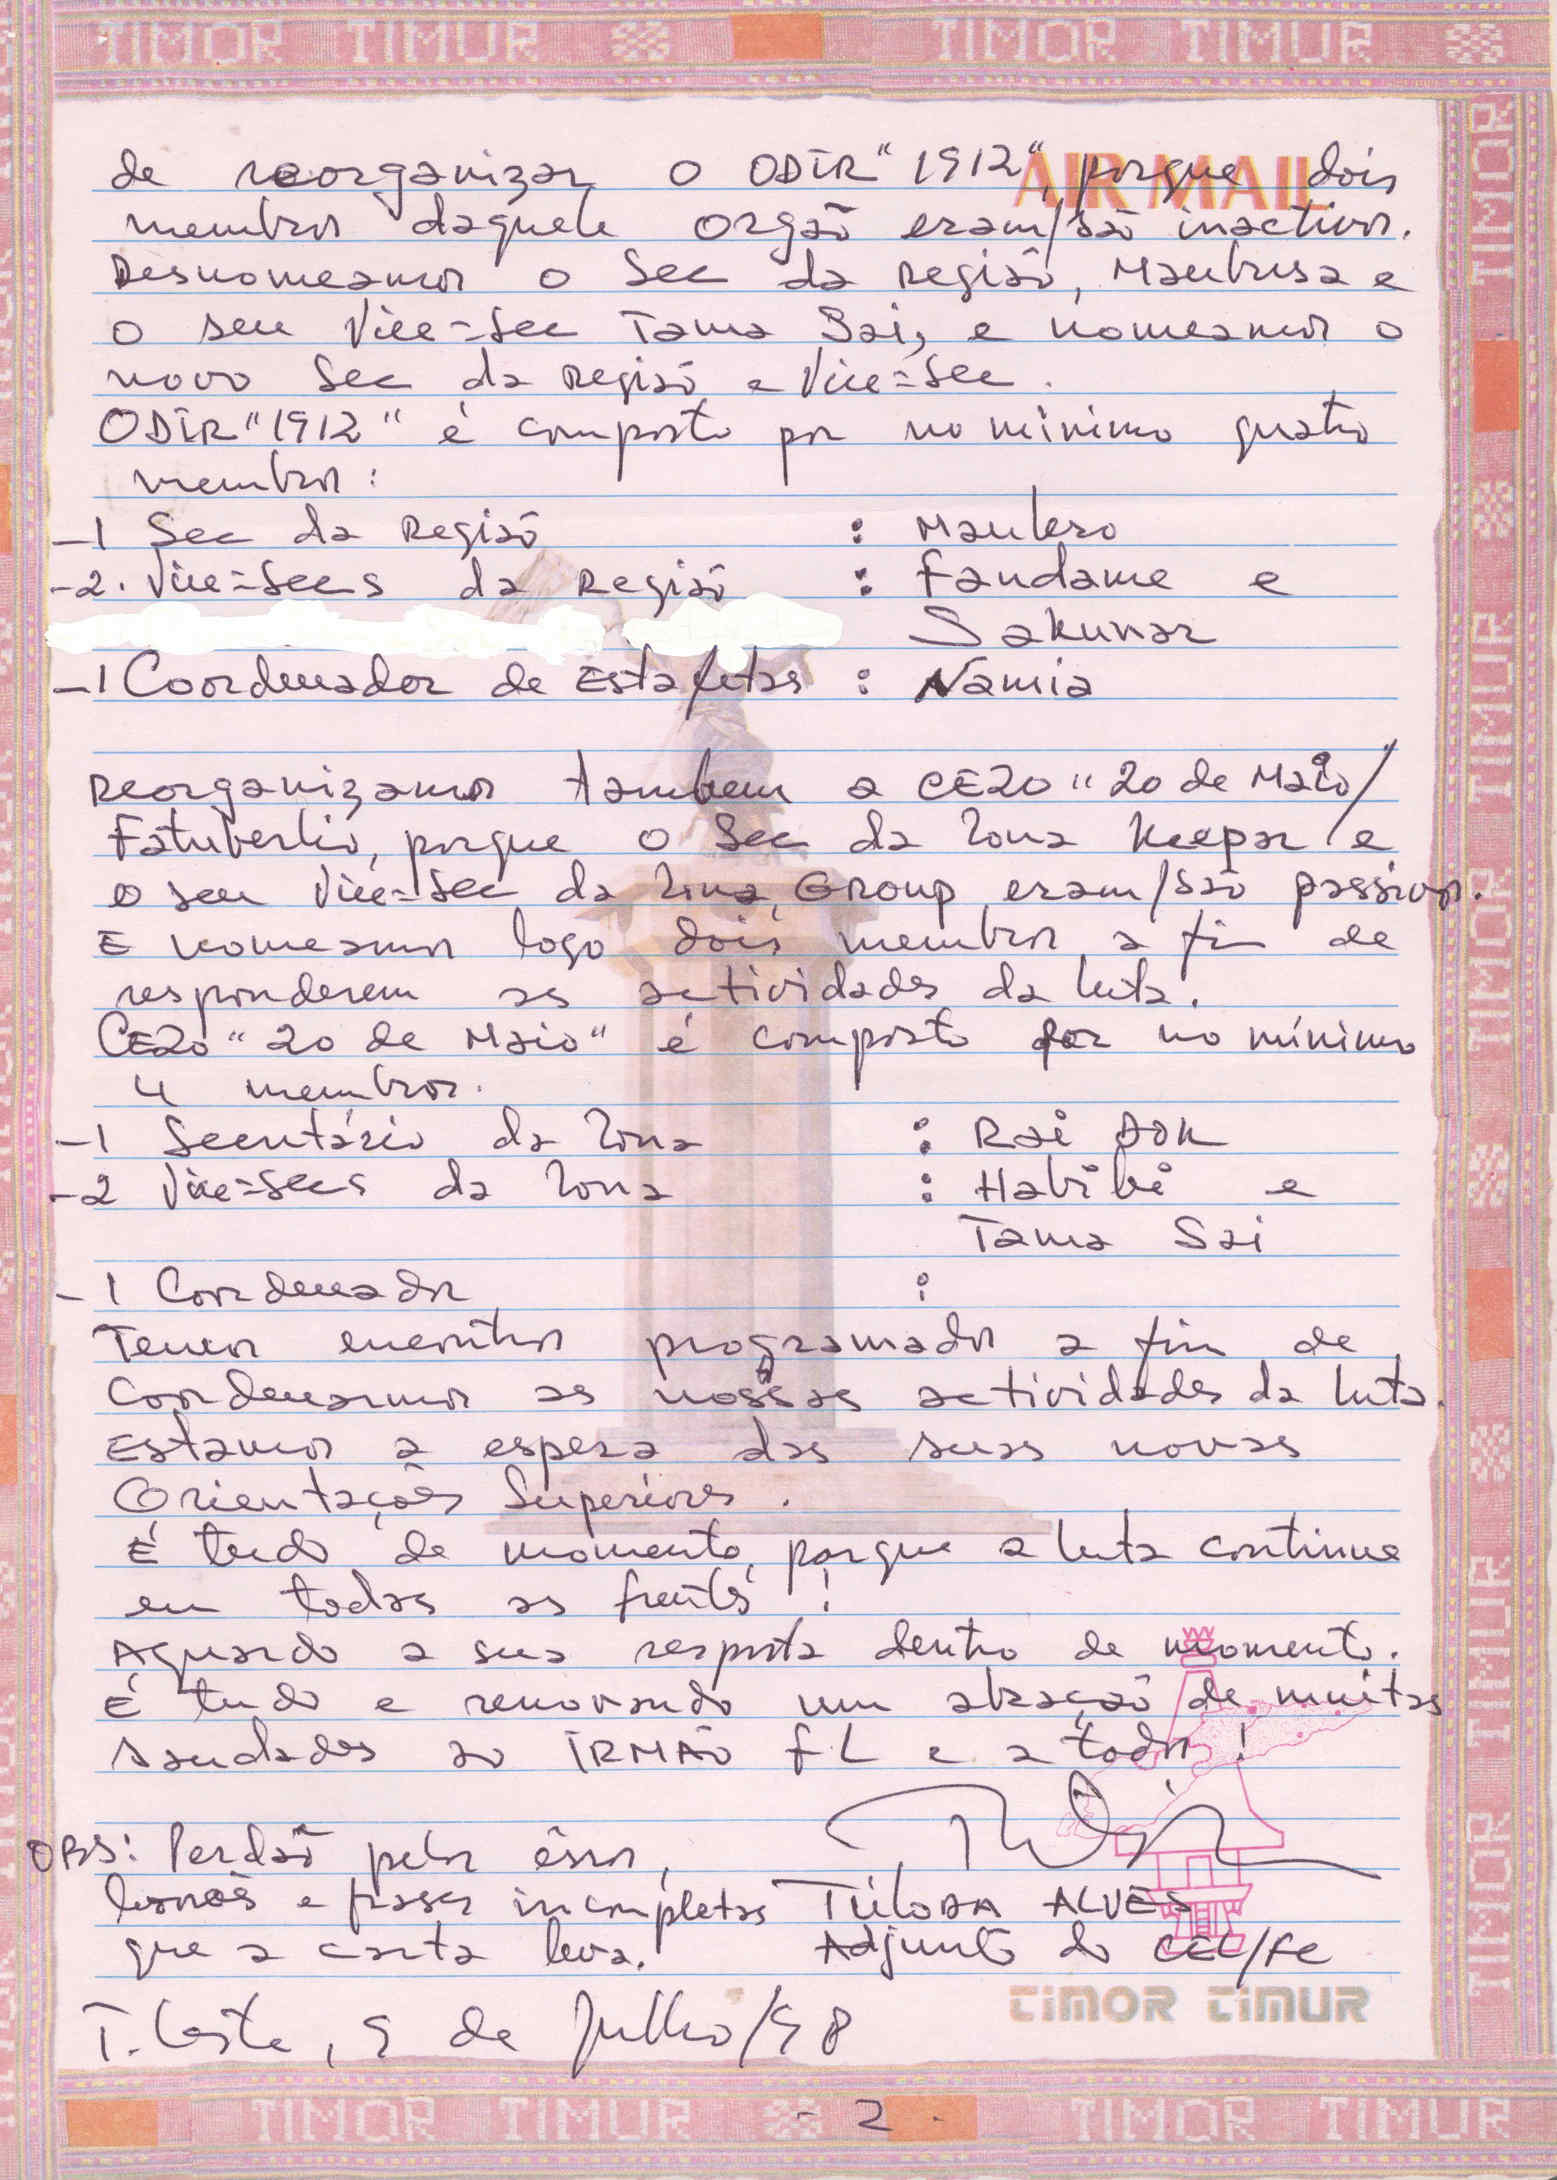 TIMOR TIMUR TIMOR TIMUR
AIR MAIL
de reorganizar o ODIR "1912", porque dois
membros daquele orgaõ eram/saõ inactivos.
Desnomeamos o Sec da Regiaõ, Maubusa e
o seu Vice=Sec Tama Sai, e nomeamos o
novo Sec da Regiaõ e Vice=Sec.
ODIR "1912" é composto por no minimo quatro
membros:
-1 Sec da Regiaõ : Maulero
-2. Vice=Secs da Regiaõ : Fandame e
Sakunar
-1 Coordenador de Estafetas : Namia
Reorganizamos tambem a CEZO "20 de Maio/
Fatuberlio, porque o Sec da Zona Keepar e
o seu Vice=Sec da Zona, Group eram/saõ passivos.
E nomeamos logo dois membros a fim de
responderem as actividades da luta.
CEZO "20 de Maio" é composto por no mínimo
4 membros.
-1 Secretário da Zona : Rai
-2 Vice=Secs da Zona : Habibi e
Tama Sai
-1 Coordenador :
Temos encontros programados a fim de
Coordenarmos as nossas actividades da luta.
Estamos a espera das suas novas
Orientações Superiores.
É tudo de momento, porque a luta continue
em todas as frentes!
Aguardo a sua resposta dentro de momento.
É tudo e renovando um abraçaõ de muitas
saudades ao IRMÃO FL e a todos!
OBS: Perdaõ pelos êrros,
borroẽs e frases incompletas
que a carta leva.
TILODA ALVES
Adjunto do CEL/FE
T. Leste, 9 de Julho/98
TIMOR TIMUR
TIMOR TIMUR TIMOR TIMUR
- 2 -